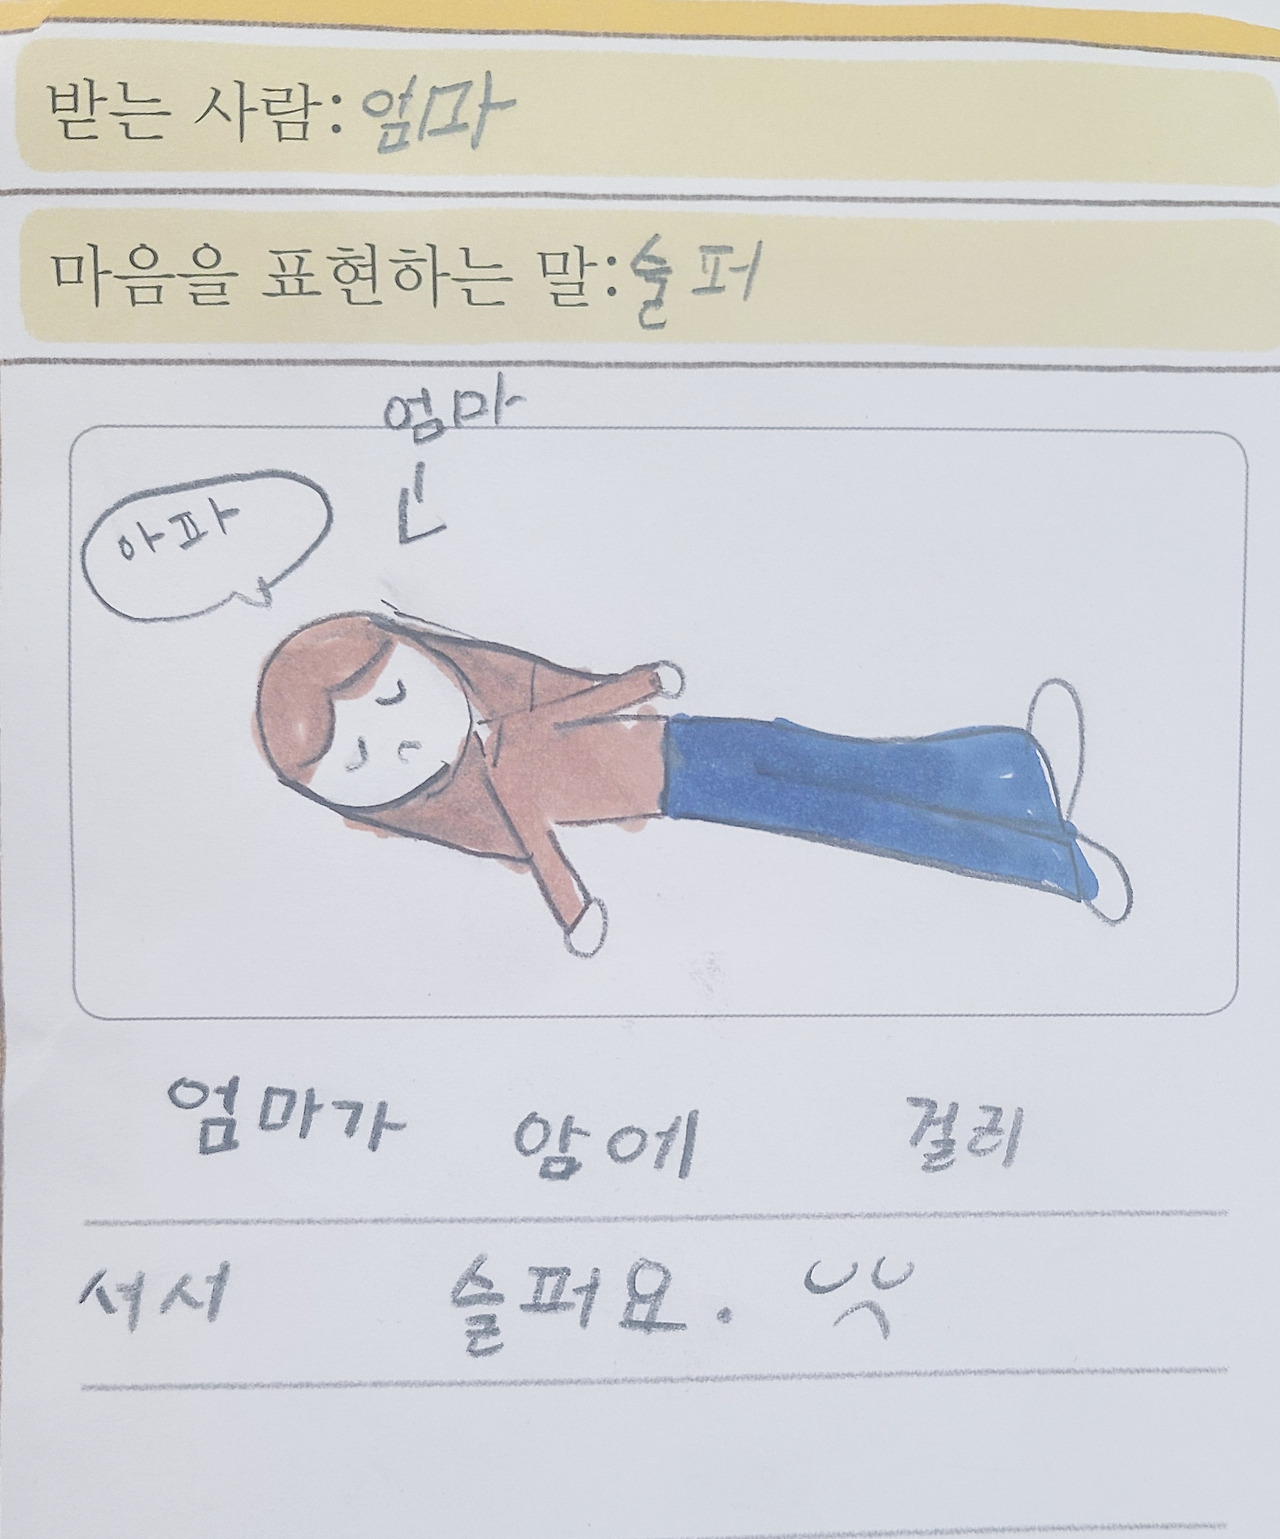 받는 사람: 엄마
마음을 표현하는 말: 슬퍼
엄마
아파
엄마가 암에 걸리
셔서 슬퍼요.